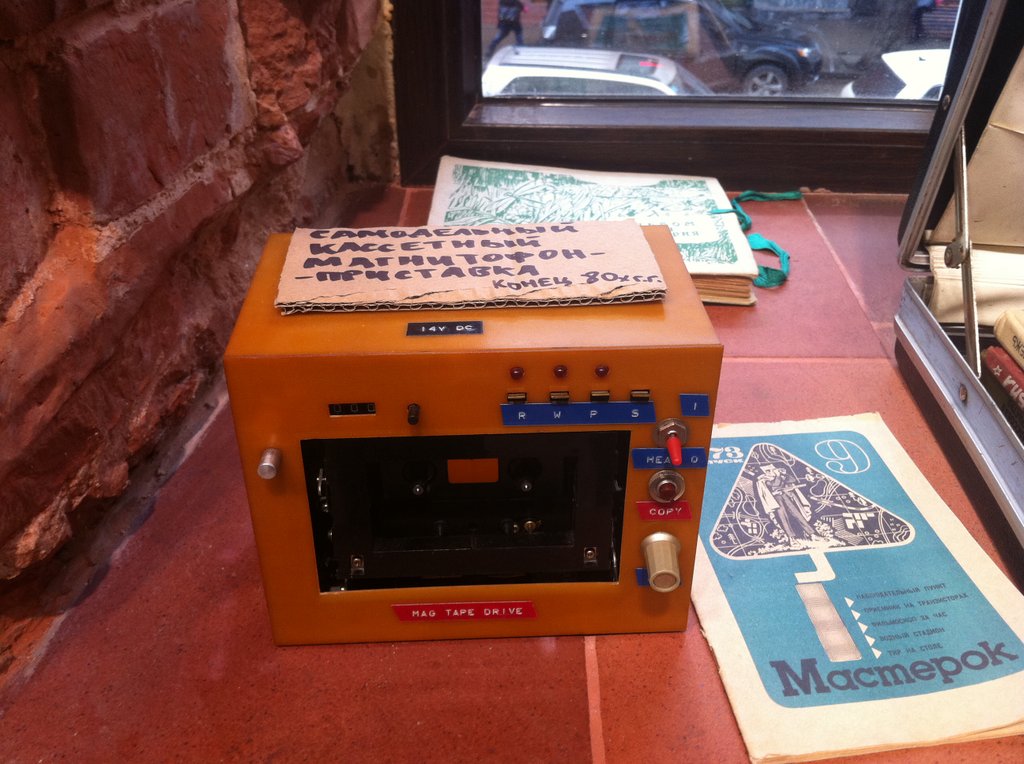 САМОДЕЛЬНЫЙ
КАССЕТНЫЙ
МАГНИТОФОН-
-ПРИСТАВКА
КОНЕЦ 80х г.г.
14V DC
000
R W P S
I
HEA O
COPY
MAG TAPE DRIVE
73
9
НАБЛЮДАТЕЛЬНЫЙ ПУНКТ
ПРИЕМНИК НА ТРАНЗИСТОРАХ
ФИЛЬМОСКОП ЗА ЧАС
ВОДНЫЙ СТАДИОН
ТИР НА СТОЛЕ
Мастерок